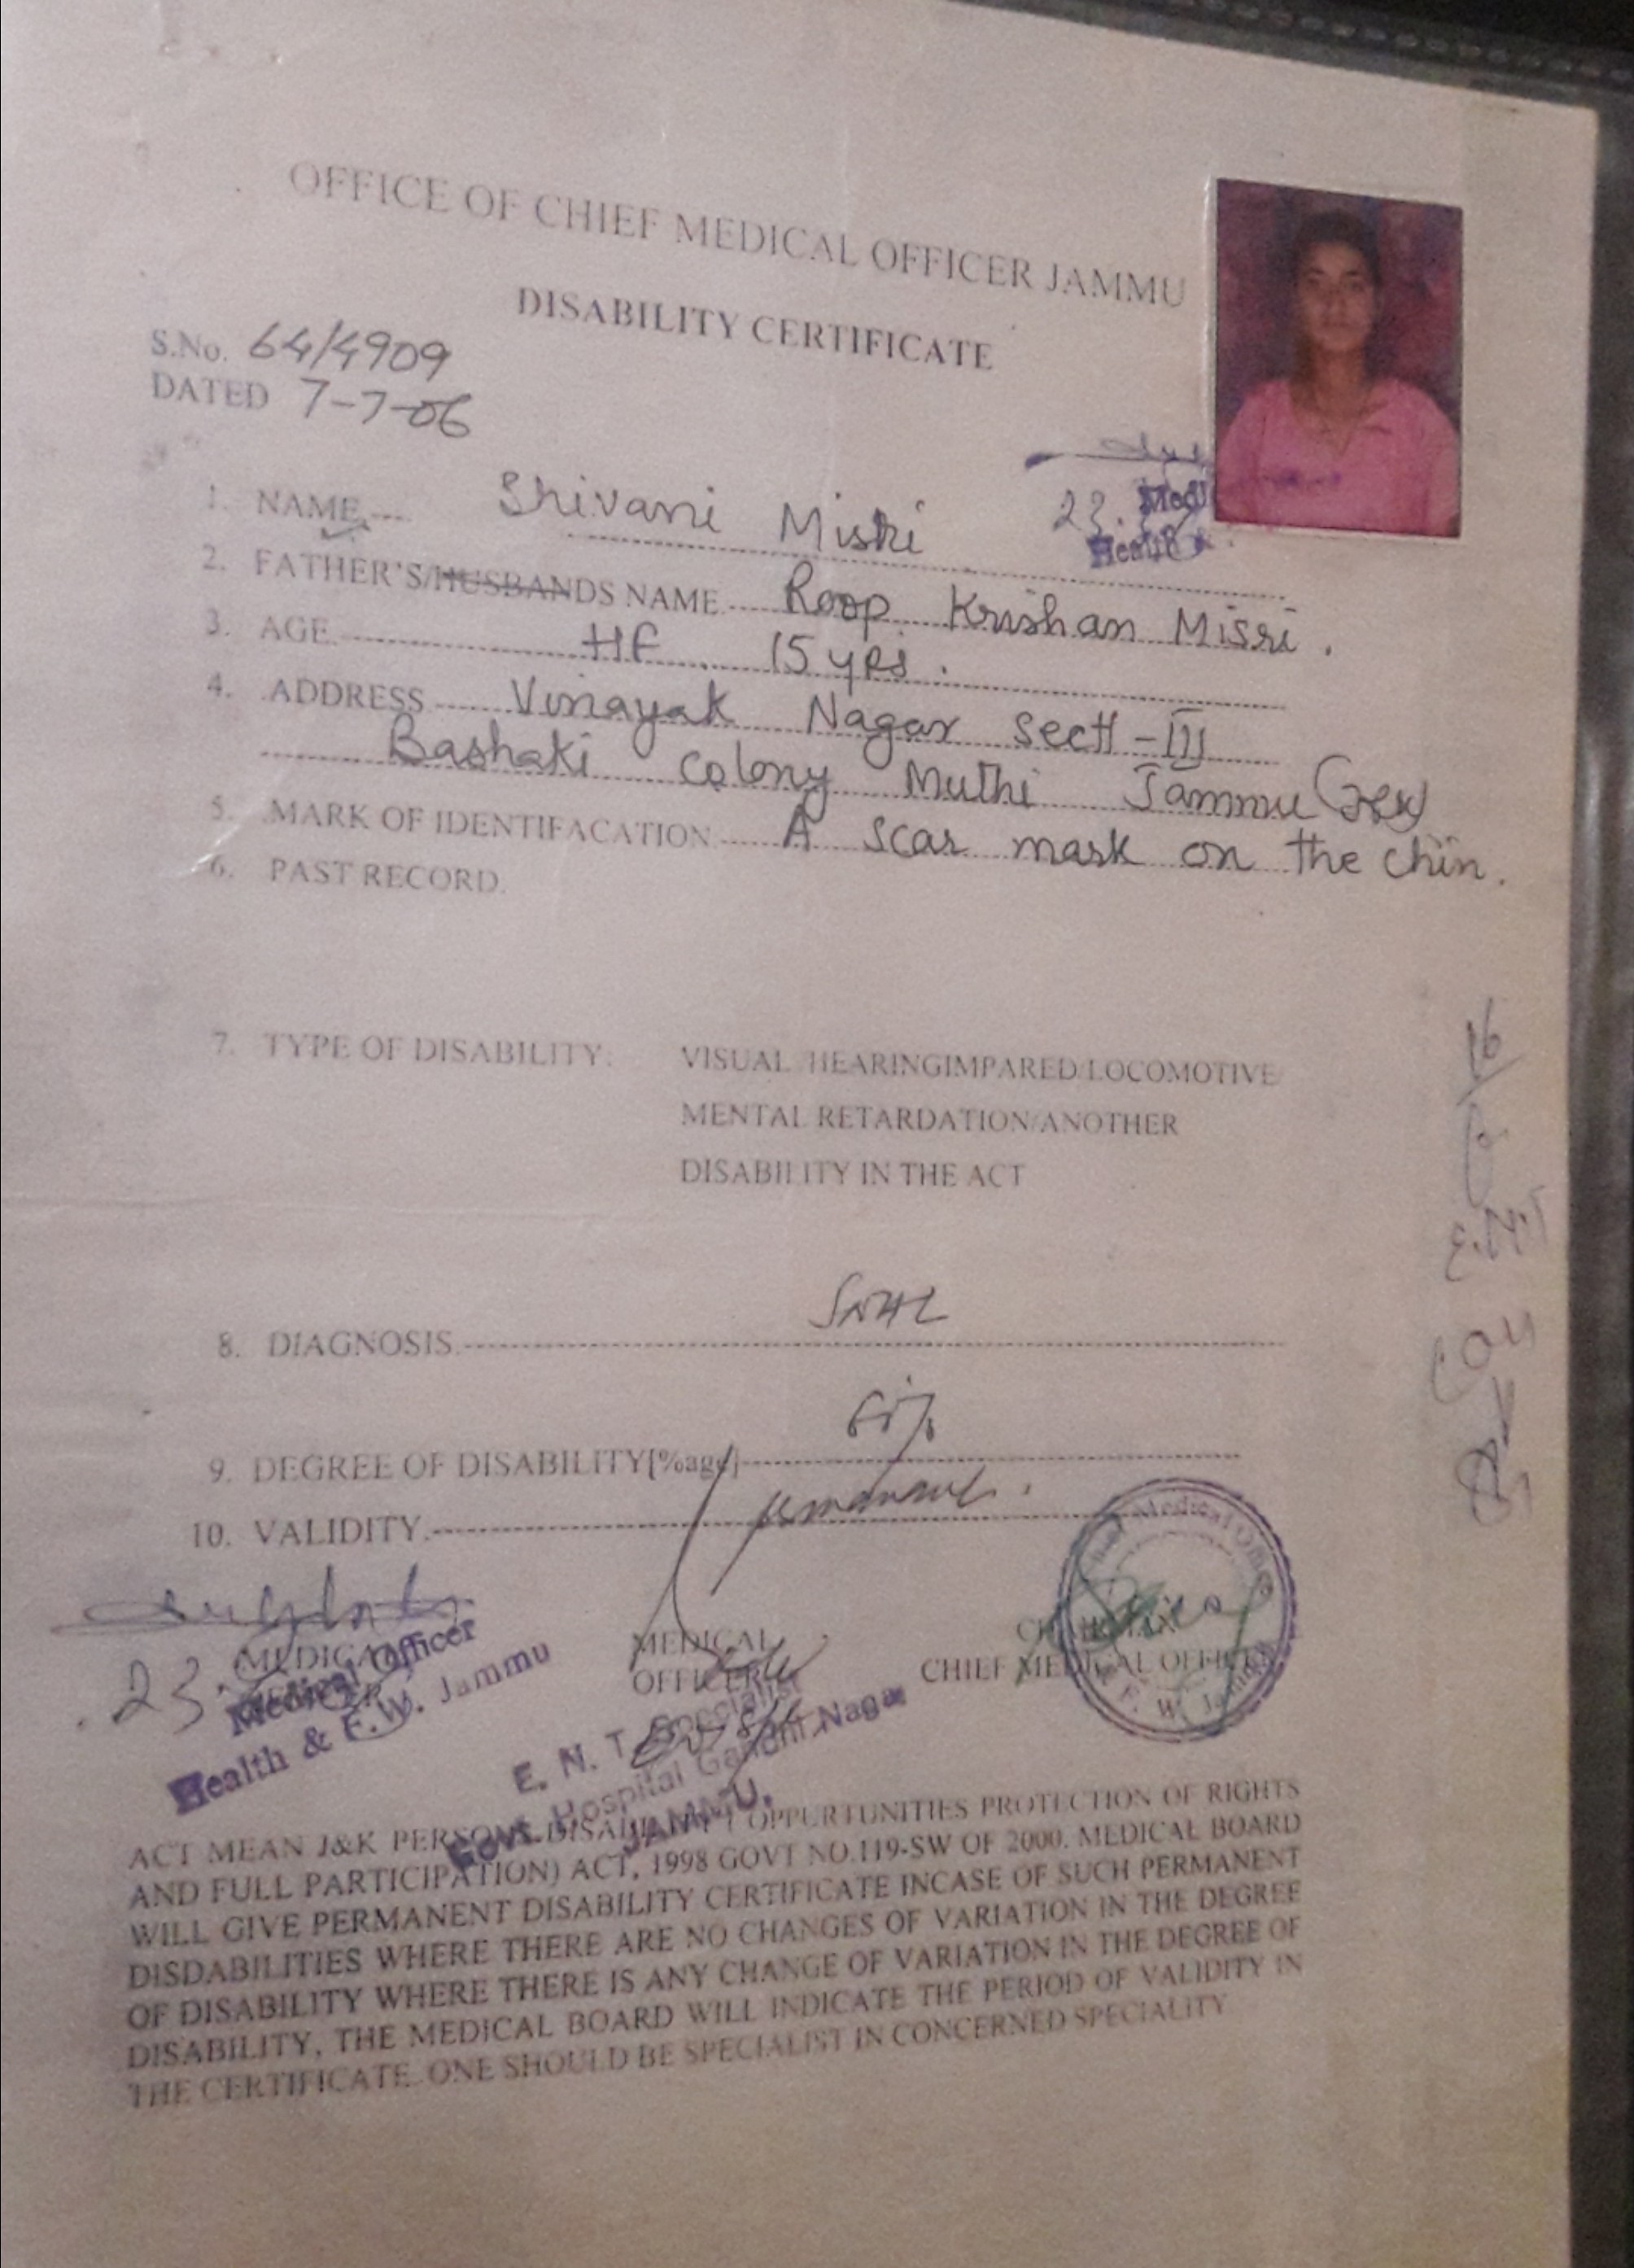 OFFICE OF CHIEF MEDICAL OFFICER JAMMU
DISABILITY CERTIFICATE
S.No. 64/4909
DATED 7-7-06
1. NAME Shivani Misri
2. FATHER'S/HUSBANDS NAME Roop Krishan Misri.
3. AGE HF 15 yrs.
4. ADDRESS Vinayak Nagar Sect-III
Bashaki Colony Muthi Jammu
5. MARK OF IDENTIFACATION A scar mark on the chin.
6. PAST RECORD.
23.
7. TYPE OF DISABILITY. VISUAL/HEARINGIMPARED/LOCOMOTIVE
MENTAL RETARDATION/ANOTHER
DISABILITY IN THE ACT
E.N.T
8. DIAGNOSIS SNHL
9. DEGREE OF DISABILITY[%age]
10. VALIDITY. permanent.
23
Medical Officer
Health & F.W. Jammu
MEDICAL
OFFICER
E. N. T. Specialist
Govt. Hospital Gandhi Nagar
JAMMU.
CHAIRMAN
CHIEF MEDICAL OFFICER
Chief Medical Officer
F. W. Jammu
ACT MEAN J&K PERSONS DISABILITY OPPURTUNITIES PROTECTION OF RIGHTS
AND FULL PARTICIPATION) ACT, 1998 GOVT NO.119-SW OF 2000. MEDICAL BOARD
WILL GIVE PERMANENT DISABILITY CERTIFICATE INCASE OF SUCH PERMANENT
DISDABILITIES WHERE THERE ARE NO CHANGES OF VARIATION IN THE DEGREE
OF DISABILITY WHERE THERE IS ANY CHANGE OF VARIATION IN THE DEGREE OF
DISABILITY, THE MEDICAL BOARD WILL INDICATE THE PERIOD OF VALIDITY IN
THE CERTIFICATE. ONE SHOULD BE SPECIALIST IN CONCERNED SPECIALITY